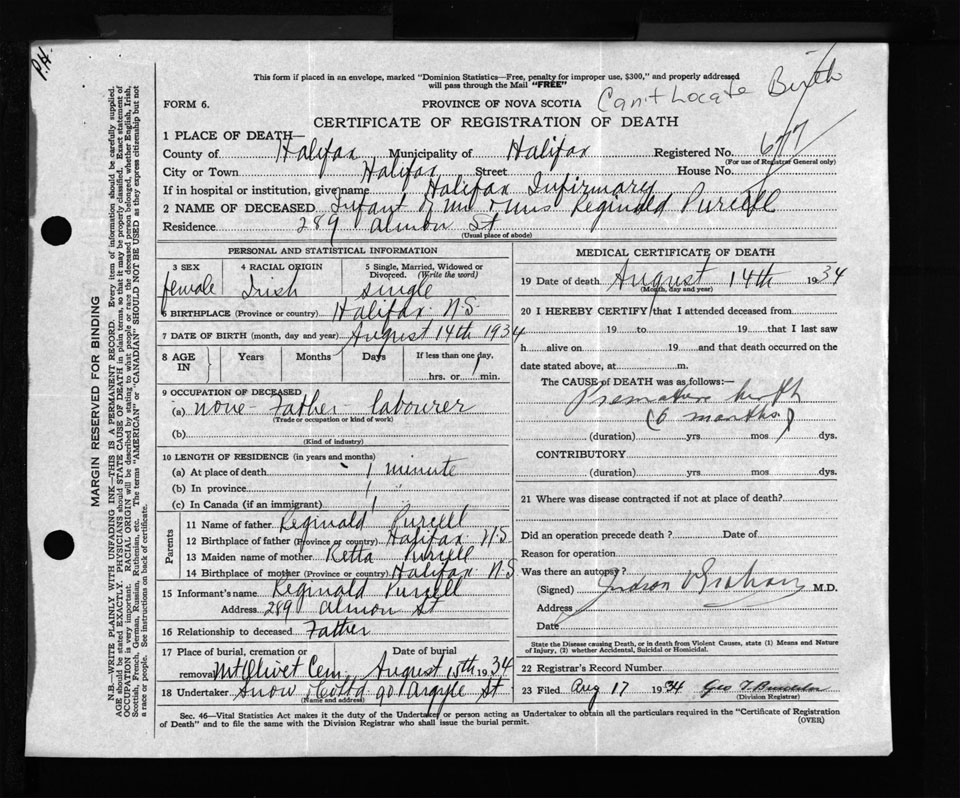 P.H.
This form if placed in an envelope, marked "Dominion Statistics—Free, penalty for improper use, $300," and properly addressed
will pass through the Mail "FREE"
FORM 6.
PROVINCE OF NOVA SCOTIA
Can't Locate Birth
CERTIFICATE OF REGISTRATION OF DEATH
1 PLACE OF DEATH—
County of Halifax Municipality of Halifax Registered No. 677
(For use of Registrar General only)
City or Town Halifax Street House No.
If in hospital or institution, give name Halifax Infirmary
2 NAME OF DECEASED Infant of Mr & Mrs Reginald Purcell
Residence 289 Almon St
(Usual place of abode)
PERSONAL AND STATISTICAL INFORMATION
3 SEX 4 RACIAL ORIGIN 5 Single, Married, Widowed or
Divorced. (Write the word)
female Irish single
6 BIRTHPLACE (Province or country) Halifax N.S.
7 DATE OF BIRTH (month, day and year) August 14th 1934
8 AGE IN Years Months Days If less than one day,
hrs. or 1 min.
9 OCCUPATION OF DECEASED
(a) none - Father - labourer
(Trade or occupation or kind of work)
(b)
(Kind of industry)
10 LENGTH OF RESIDENCE (in years and months)
(a) At place of death 1 minute
(b) In province 1 "
(c) In Canada (if an immigrant) 1
Parents
11 Name of father Reginald Purcell
12 Birthplace of father (Province or country) Halifax N.S.
13 Maiden name of mother Retta Purcell
14 Birthplace of mother (Province or country) Halifax N.S
15 Informant's name Reginald Purcell
Address 289 Almon St
16 Relationship to deceased Father
17 Place of burial, cremation or removal Date of burial
Mt Olivet Cem. August 15th 1934
18 Undertaker Snow & Co Ltd 90 Argyle St
(Name and address)
MEDICAL CERTIFICATE OF DEATH
19 Date of death August 14th 1934
(Month, day and year)
20 I HEREBY CERTIFY that I attended deceased from
19 to 19 that I last saw
h alive on 19 and that death occurred on the
date stated above, at m.
The CAUSE of DEATH was as follows:—
Premature birth
(6 months)
(duration) yrs mos dys.
CONTRIBUTORY
(duration) yrs mos dys.
21 Where was disease contracted if not at place of death?
Did an operation precede death ? Date of
Reason for operation
Was there an autopsy ?
(Signed) Judson V Graham M.D.
Address
Date
State the Disease causing Death, or in death from Violent Causes, state (1) Means and Nature
of Injury, (2) whether Accidental, Suicidal or Homicidal.
22 Registrar's Record Number
23 Filed Aug 17 1934 Geo
(Division Registrar)
Sec. 46—Vital Statistics Act makes it the duty of the Undertaker or person acting as Undertaker to obtain all the particulars required in the "Certificate of Registration
of Death" and to file the same with the Division Registrar who shall issue the burial permit.
(OVER)
MARGIN RESERVED FOR BINDING
N.B.—WRITE PLAINLY WITH UNFADING INK—THIS IS A PERMANENT RECORD. Every item of information should be carefully supplied.
AGE should be stated EXACTLY. PHYSICIANS should STATE CAUSE OF DEATH in plain terms, so that it may be properly classified. Exact statement of
OCCUPATION is very important. RACIAL ORIGIN will be described by stating to what people or race the deceased person belonged, whether English, Irish,
Scottish, French, German, Russian, Ruthenian, etc. The terms "AMERICAN" or "CANADIAN" SHOULD NOT BE USED as they express citizenship but not
a race or people. See instructions on back of certificate.